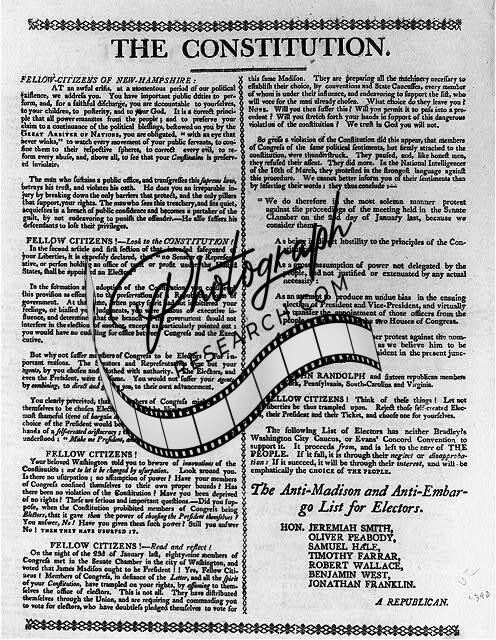 THE CONSTITUTION.
FELLOW-CITIZENS OF NEW-HAMPSHIRE:
AT an awful crisis, at a momentous period of our political
existence, we address you. You have important public duties to per-
form, and, for a faithful discharge, you are accountable to yourselves,
to your children, to posterity, and to your God. It is a correct princi-
ple that all power emanates from the people; and to preserve your
claim to a continuance of the political blessings, bestowed on you by the
GREAT ARBITER OF NATIONS, you are obligated, " with an eye that
never winks," to watch every movement of your public servants, to con-
fine them to their respective spheres, to correct every evil, to re-
form every abuse, and, above all, to see that your Constitution is preserv-
ed inviolate.
The man who sustains a public office, and transgresses this supreme law,
betrays his trust, and violates his oath. He does you an irreparable in-
jury by breaking down the only barriers that defends, and the only pillars
that support, your rights. The man who sees this treachery, and sits quiet,
acquiesces in a breach of public confidence and becomes a partaker of the
guilt, by not endeavouring to punish the offender.—He also suffers his
descendants to lose their privileges.
FELLOW CITIZENS!—Look to the CONSTITUTION!
In the second article and first section of that safeguard of your
Liberties, it is expressly declared, that " no Senator or Represent-
ative, or person holding an office of trust or profit under the United
States, shall be appointed an Elector."
In the formation and adoption of the Constitution
this provision as essential to the preservation of
government. At the your
feelings, or biassed your executive in-
fluence, and determined that the members of government should not
interfere in the election of executive, except as particularly pointed out;
you would have no coalition for office between Congress and the Exec-
utive.
But why not suffer members of Congress to be Electors? For an im-
portant reason. The Senators and Representatives are but your
agents, by you chosen and clothed with authority. You are Electors, and
even the President, were to name. You would not suffer your agents,
by combining, to direct and control you, to their own advancement.
You clearly perceived, that if members of Congress might
themselves to be chosen Electors, the people's liberties
most shameful sense of bargain
choice of the President would be
hands of a self-created aristocracy;
understood; " Make me President, and
FELLOW CITIZENS!
Your beloved Washington told you to beware of innovations of the
Constitution; not to let it be changed by usurpation. Look around you.
Is there no usurpation; no assumption of power? Have your members
of Congress confined themselves to their own proper bounds? Has
there been no violation of the Constitution? Have you been deprived
of no rights? These are serious and important questions.—Did you sup-
pose, when the Constitution prohibited members of Congress being
Electors, that it gave them the power of choosing the President themselves?
You answer, No! Have you given them such power? Still you answer
No! THEN THEY HAVE USURPED IT.
FELLOW CITIZENS!—Read and reflect!
On the night of the 23d of January last, eighty-nine members of
Congress met in the Senate Chamber in the city of Washington, and
voted that James Madison ought to be President!! Yes, Fellow Citi-
zens! Members of Congress, in defiance of the Letter, and all the spirit
of your Constitution, have trampled on your rights, by assuming to them-
selves the office of electors. This is not all. They have distributed
themselves through the Union, and are requiring and commanding you
to vote for electors, who have doubtless pledged themselves to vote for
this same Madison. They are preparing all the machinery necessary to
establish their choice, by conventions and State Caucusses, every member
of whom is under their influence, and endeavouring to support the list, who
will vote for the man already chosen. What choice do they leave you?
NONE. Will you then suffer this? Will you permit it to pass into a pre-
cedent? Will you stretch forth your hands in support of this dangerous
violation of the constitution? We trust in God you will not.
So gross a violation of the Constitution did this appear, that members
of Congress of the same political sentiments, but firmly attached to the
constitution, were thunderstruck. They paused, and, like honest men,
they refused their assent. They did more. In the National Intelligencer
of the 16th of March, they protested in the strongest language against this
procedure. We cannot better inform you of their sentiments than
by inserting their words; they thus conclude:—
" We do therefore in the most solemn manner protest
against the proceedings of the meeting held in the Senate
Chamber on the 23d day of January last, because we
consider them
As hostility to the principles of the Con-
As a gross assumption of power not delegated by the
people, and not justified or extenuated by any actual
necessity:
As an attempt to produce an undue bias in the ensuing
election of President and Vice-President, and virtually
to transfer the appointment of those officers from the
people to the two Houses of Congress.
protest against the nom-
as we believe him to be
President in the present junc-
JOHN RANDOLPH and sixteen republican members
Pennsylvania, South-Carolina and Virginia.
FELLOW CITIZENS! Think of these things! Let not
your Liberties be thus trampled upon. Reject these self-created Elec-
tors, their President and their Ticket, and choose one for yourselves.
The following List of Electors has neither Bradley's
Washington City Caucus, or Evans' Concord Convention to
support it. It proceeds from, and is left to the care of THE
PEOPLE. If it fall, it is through their neglect or disapproba-
tion: If it succeed, it will be through their interest, and will be
emphatically the CHOICE OF THE PEOPLE.
The Anti-Madison and Anti-Embar-
go List for Electors.
HON. JEREMIAH SMITH,
OLIVER PEABODY,
SAMUEL HALE,
TIMOTHY FARRAR,
ROBERT WALLACE,
BENJAMIN WEST,
JONATHAN FRANKLIN.
A REPUBLICAN.
Photograph
RESEARCH.COM